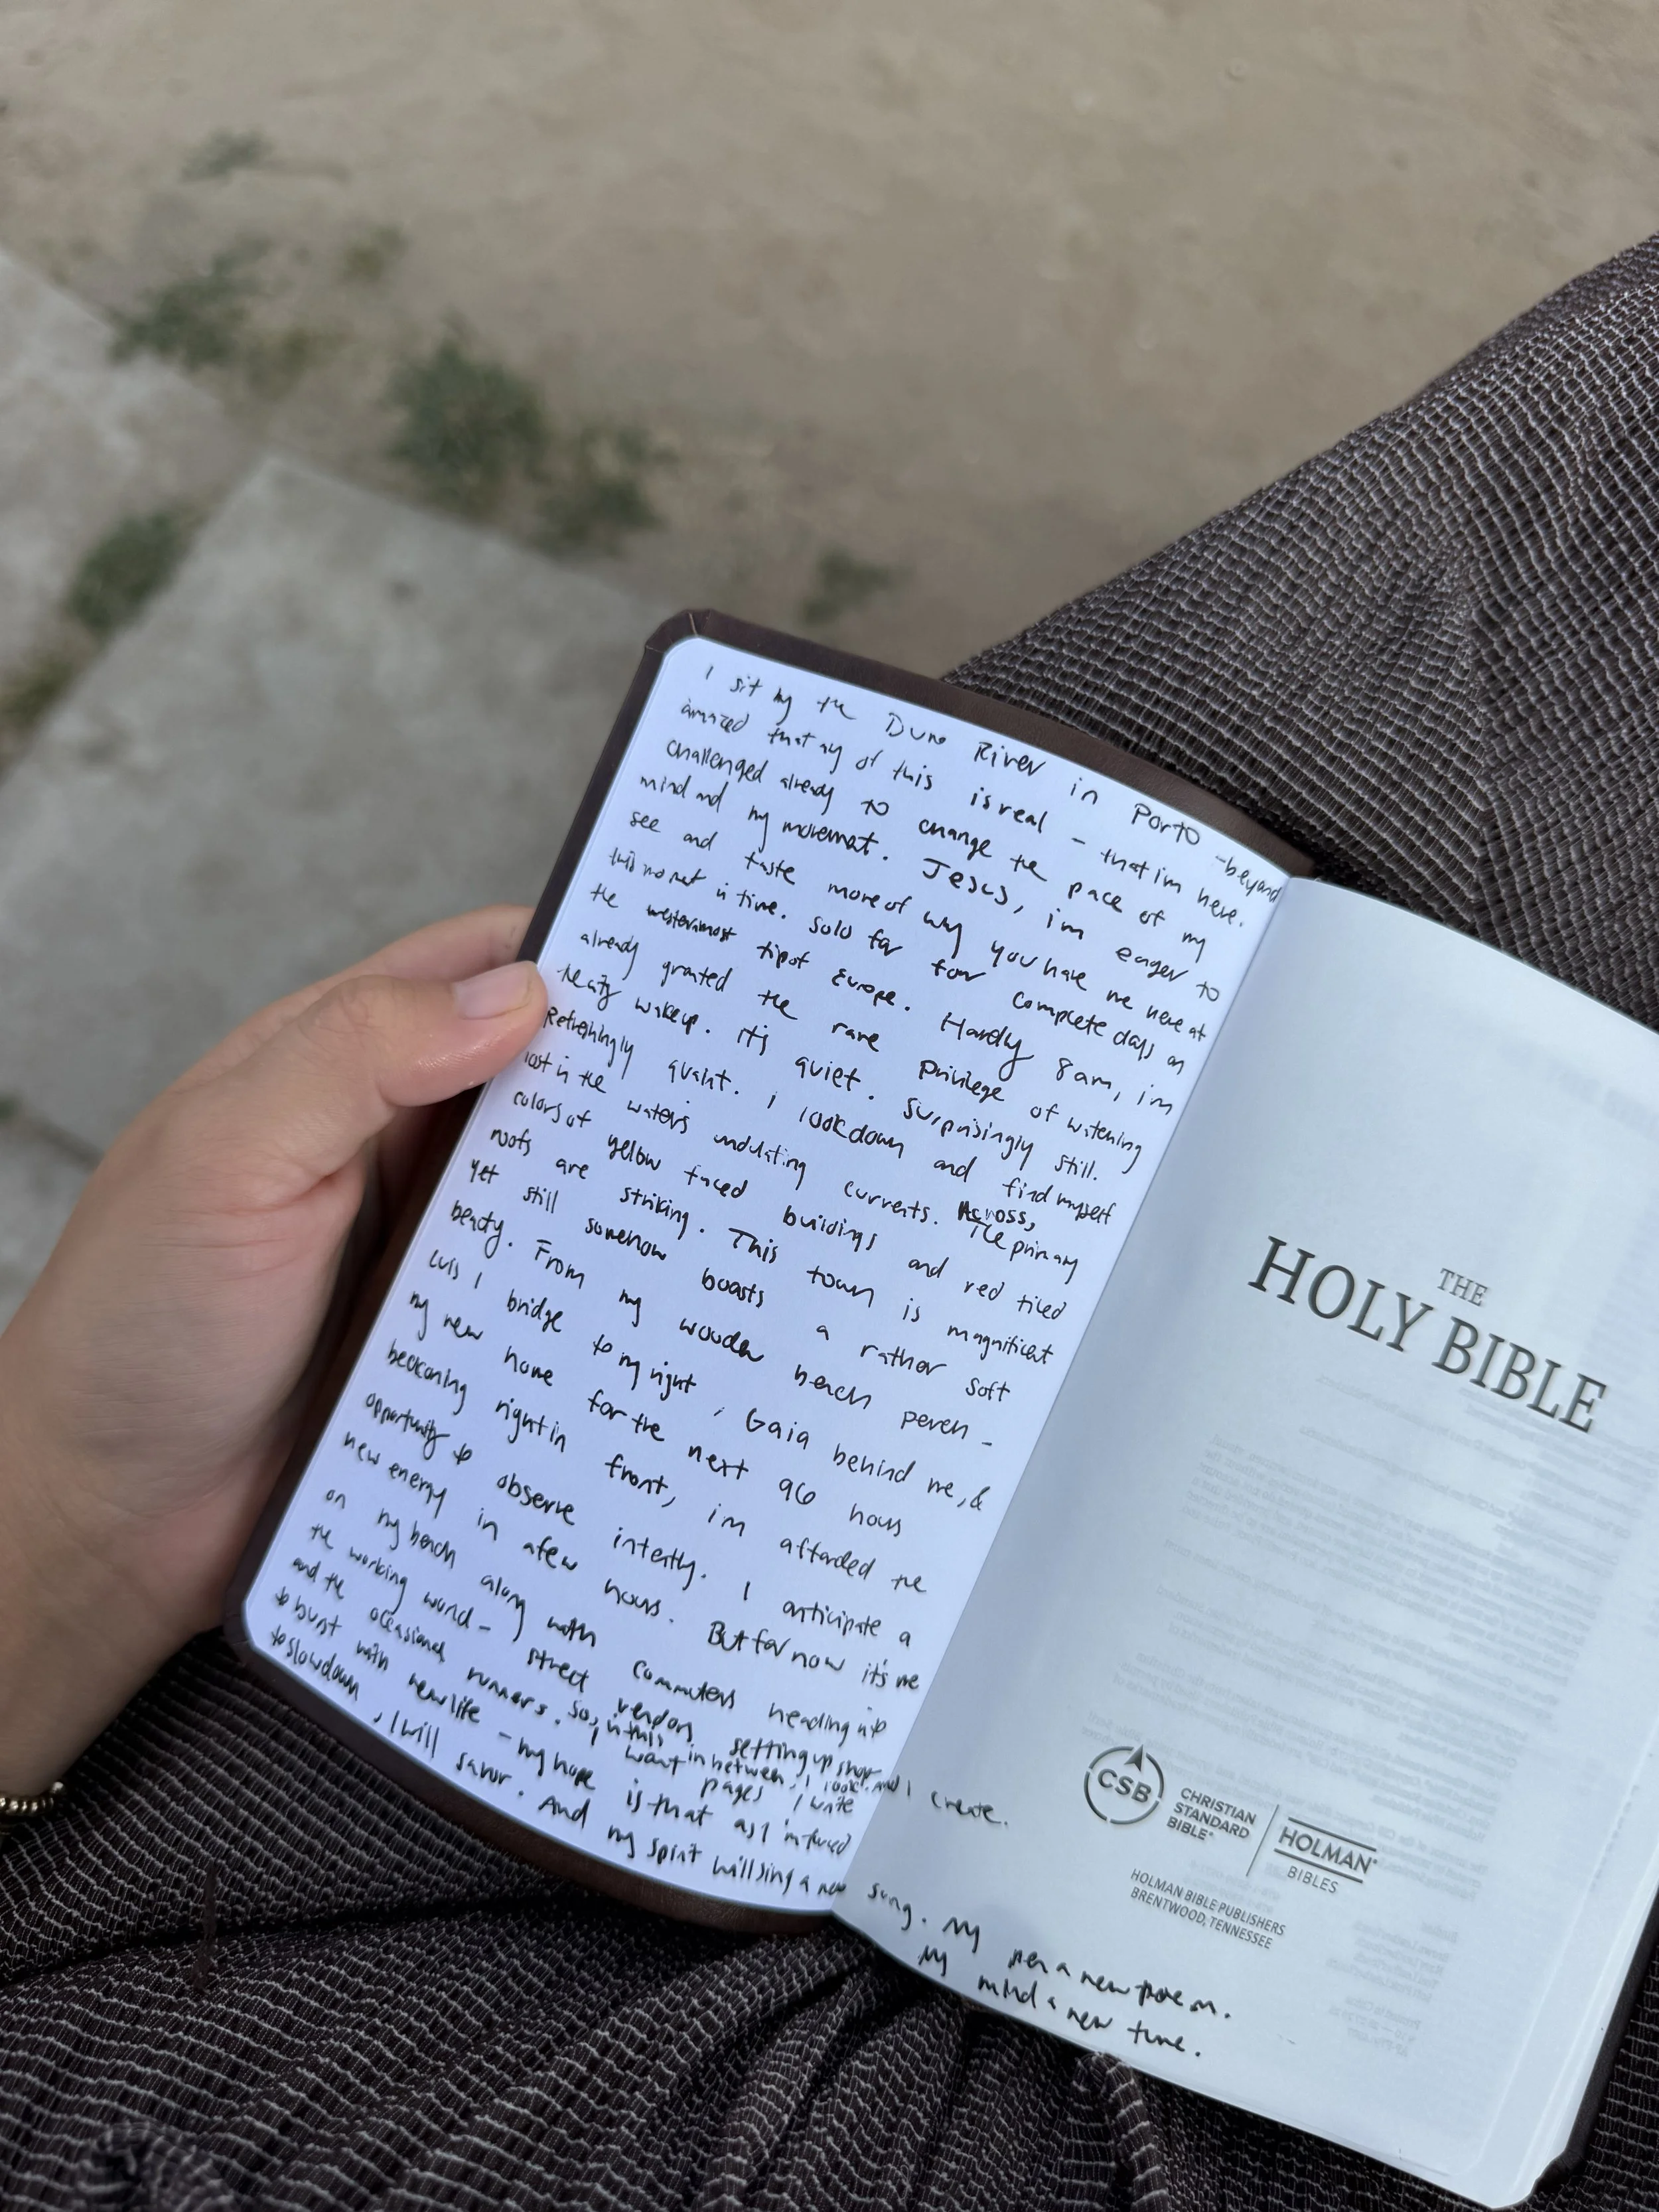 I sit by the Duro River in Porto - beyond
amazed that any of this is real - that im here.
Challenged already to change the pace of my
mind and my movement. Jesus, im eager to
see and taste more of why you have me here at
this moment in time. Solo for four complete days on
the westernmost tip of Europe. Hardly 8am, im
already granted the rare privilege of watching
the city wake up. It's quiet. Surprisingly still.
Refreshingly quaint. I look down and find myself
lost in the waters undulating currents. Across, the primary
colors of yellow faced buildings and red tiled
roofs are striking. This town is magnificent
yet still somehow boasts a rather soft
beauty. From my wooden bench perch -
Luis I bridge to my right, Gaia behind me, &
my new home for the next 96 hours
beckoning right in front, im afforded the
opportunity to observe intently. I anticipate a
new energy in a few hours. But for now it's me
on my bench along with commuters heading up
the working world - street vendors setting up shop
and the occasional runners. So, in this in between, I look and I create.
I want pages I write
to burst with new life - my hope is that as I'm forced
to slow down, I will savor. And my spirit will sing a new song. My pen a new poem.
My mind a new tune.
THE
HOLY BIBLE
CSB
CHRISTIAN
STANDARD
BIBLE®
HOLMAN®
BIBLES
HOLMAN BIBLE PUBLISHERS
BRENTWOOD, TENNESSEE